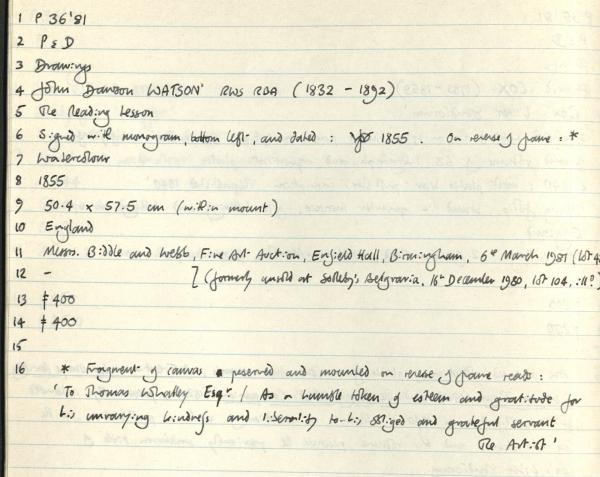 1 P 36'81
2 P & D
3 Drawings
4 John Dawson WATSON RWS RBA (1832 - 1892)
5 The Reading Lesson
6 Signed with monogram, bottom left, and dated : 1855. On reverse of frame : *
7 Watercolour
8 1855
9 50.4 x 57.5 cm (within mount)
10 England
11 Messrs. Biddle and Webb, Fine Art Auction, Enfield Hall, Birmingham, 6th March 1981 (lot
12 - ] (formerly unsold at Sotheby's Belgravia, 16th December 1980, lot 104,
13 £400
14 £400
15
16 * Fragment of canvas preserved and mounted on reverse of frame reads :
'To Thomas Whalley Esqr / As a humble token of esteem and gratitude for
his unvarying kindness and liberality to his obliged and grateful servant
The Artist'